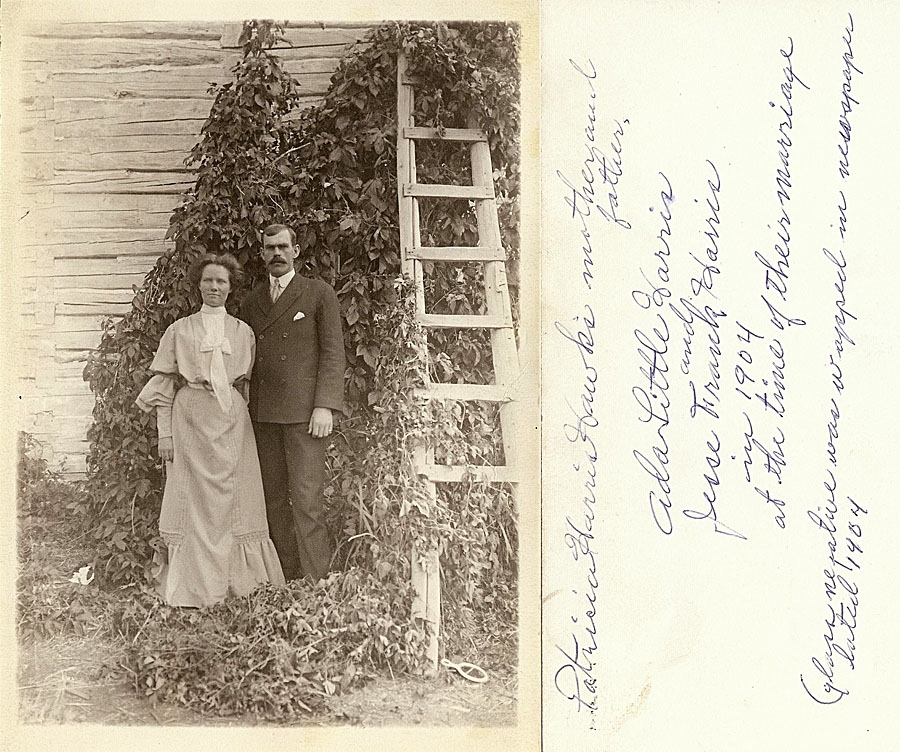 Patricia Harris Hawks mother and
father.
Ada Little Harris
and
Jesse Frank Harris
in 1904
at the time of their marriage
(glass negative was wrapped in newspaper
dated 1904